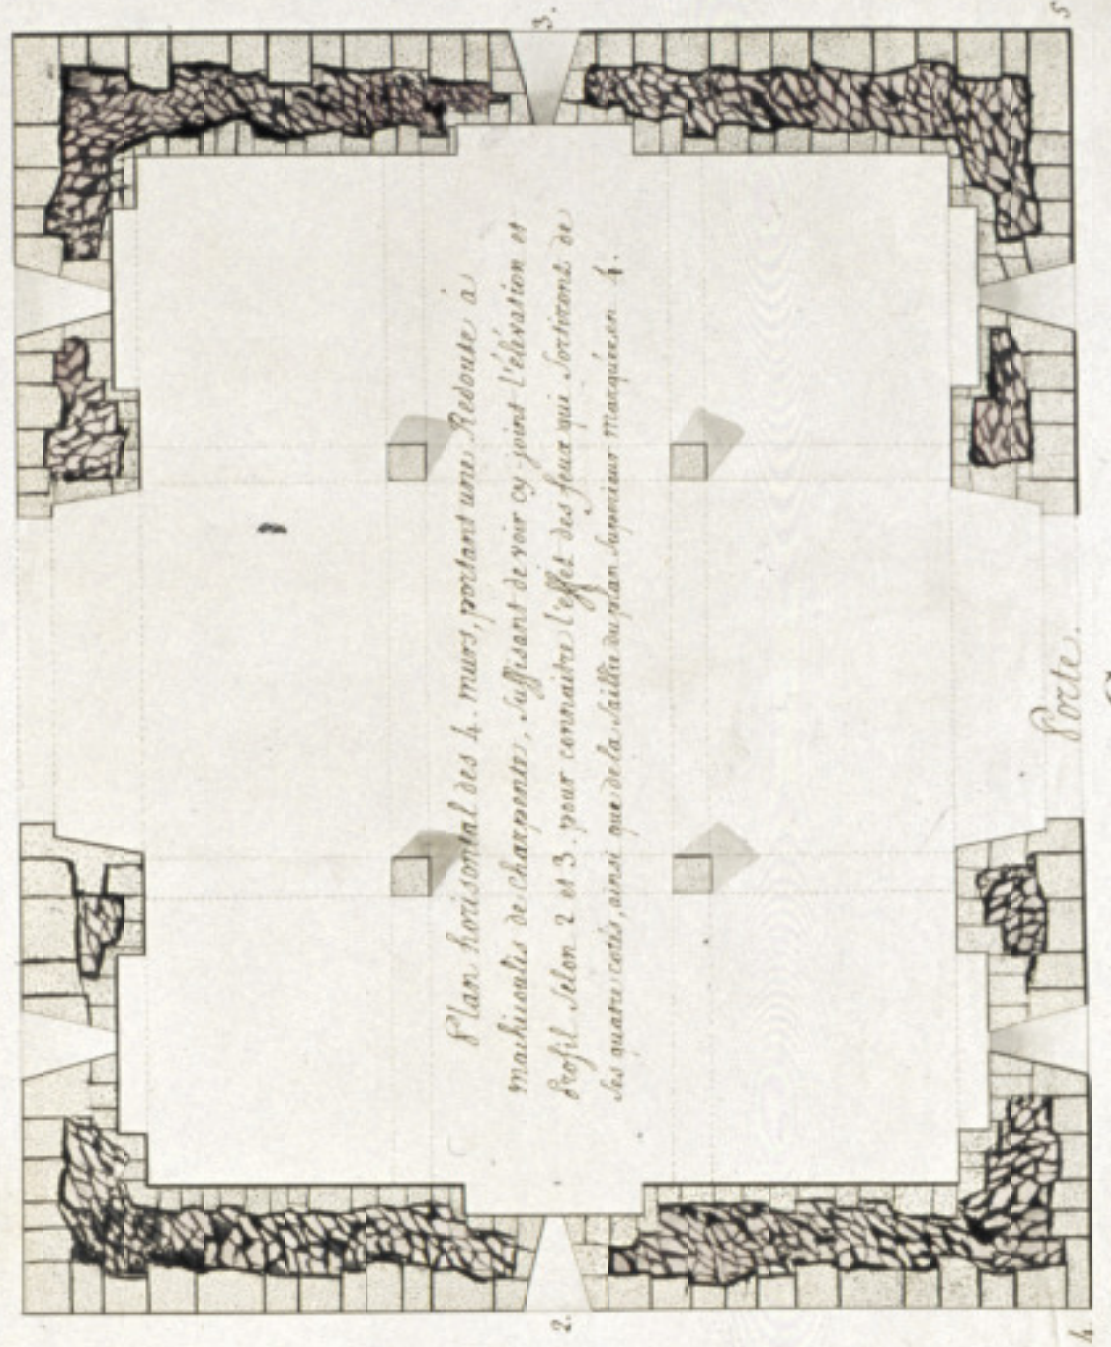 Plan horisontal des 4. murs, portant une Redoute à
machicoulis de charpente, suffisant de voir cy-joint l'élévation et
Profil selon 2 et 3. pour connaitre l'effet des feux qui sortiront de
ses quatre cotés, ainsi que de la saillie du plan superieur marquée en 4.
Porte.
2.
3.
4.
5